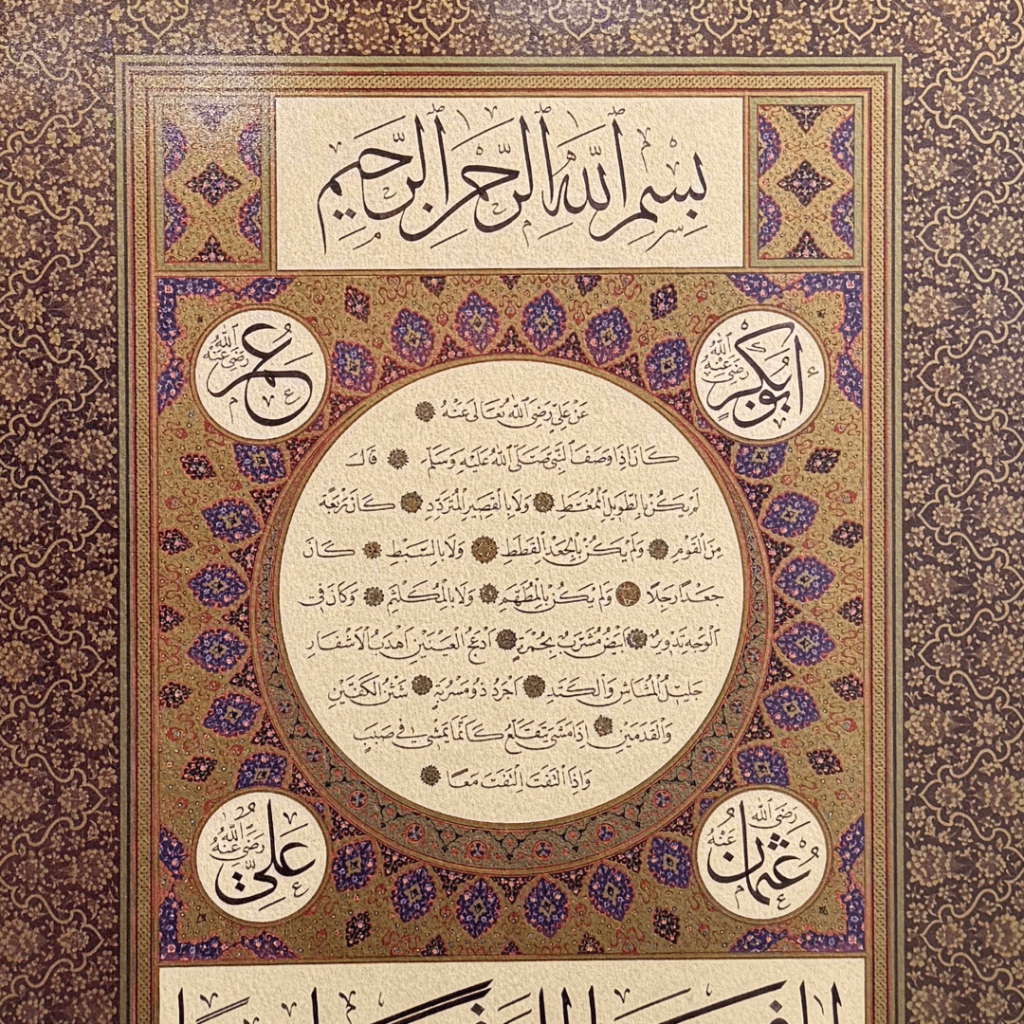 بِسْمِ ٱللَّهِ ٱلرَّحْمٰنِ ٱلرَّحِيمِ
أَبُوبَكْرٍ رَضِيَ ٱللَّهُ عَنْهُ
عُمَرُ رَضِيَ ٱللَّهُ عَنْهُ
عَنْ عَلِيٍّ رَضِيَ ٱللَّهُ تَعَالَى عَنْهُ
كَانَ إِذَا وَصَفَ ٱلنَّبِيَّ صَلَّى ٱللَّهُ عَلَيْهِ وَسَلَّمَ قَالَ
لَمْ يَكُنْ بِالطَّوِيلِ الْمُمَّغِطِ وَلَا بِالْقَصِيرِ الْمُتَرَدِّدِ كَانَ رَبْعَةً
مِنَ الْقَوْمِ وَلَمْ يَكُنْ بِالْجَعْدِ الْقَطَطِ وَلَا بِالسَّبْطِ كَانَ
جَعْدًا رَجِلًا وَلَمْ يَكُنْ بِالْمُطَهَّمِ وَلَا بِالْمُكَلْثَمِ وَكَانَ فِي
الْوَجْهِ تَدْوِيرٌ أَبْيَضُ مُشْرَبٌ بِحُمْرَةٍ أَدْعَجُ الْعَيْنَيْنِ أَهْدَبُ الْأَشْفَارِ
جَلِيلُ الْمُشَاشِ وَالْكَتَدِ أَجْرَدُ ذُو مَسْرُبَةٍ شَثْنُ الْكَفَّيْنِ
وَالْقَدَمَيْنِ إِذَا مَشَى يَتَقَلَّعُ كَأَنَّمَا يَمْشِي فِي صَبَبٍ
وَإِذَا الْتَفَتَ الْتَفَتَ مَعًا
عُثْمَانُ رَضِيَ ٱللَّهُ عَنْهُ
عَلِيٌّ رَضِيَ ٱللَّهُ عَنْهُ